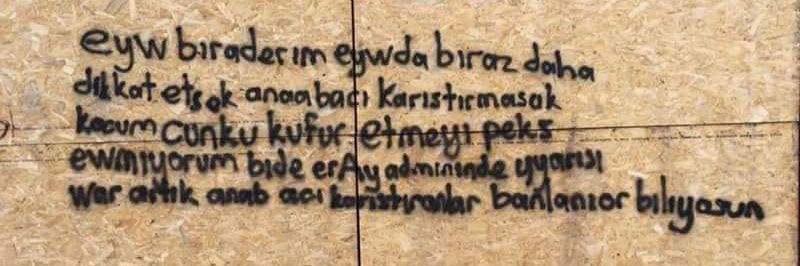 eyw bıraderım eywda bıraz daha
dıkkat etsek anaabacı karıstırmasak
kocum cunku kufur etmeyı peks
ewmıyorum bıde erAy admınınde uyarısı
war artık anab acı karıstıranlar banlanıor bılıyosun